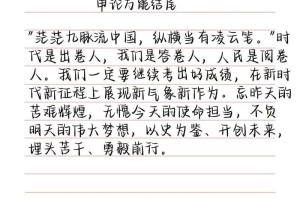 申论万能结尾
“茫茫九脉流中国,纵横当有凌云笔。”时
代是出卷人,我们是答卷人,人民是阅卷
人。我们一定要继续考出好成绩,在新时
代新征程上展现新气象新作为。忘昨天的
苦难辉煌,无愧今天的使命担当,不负
明天的伟大梦想,以史为鉴、开创未来,
埋头苦干、勇毅前行。